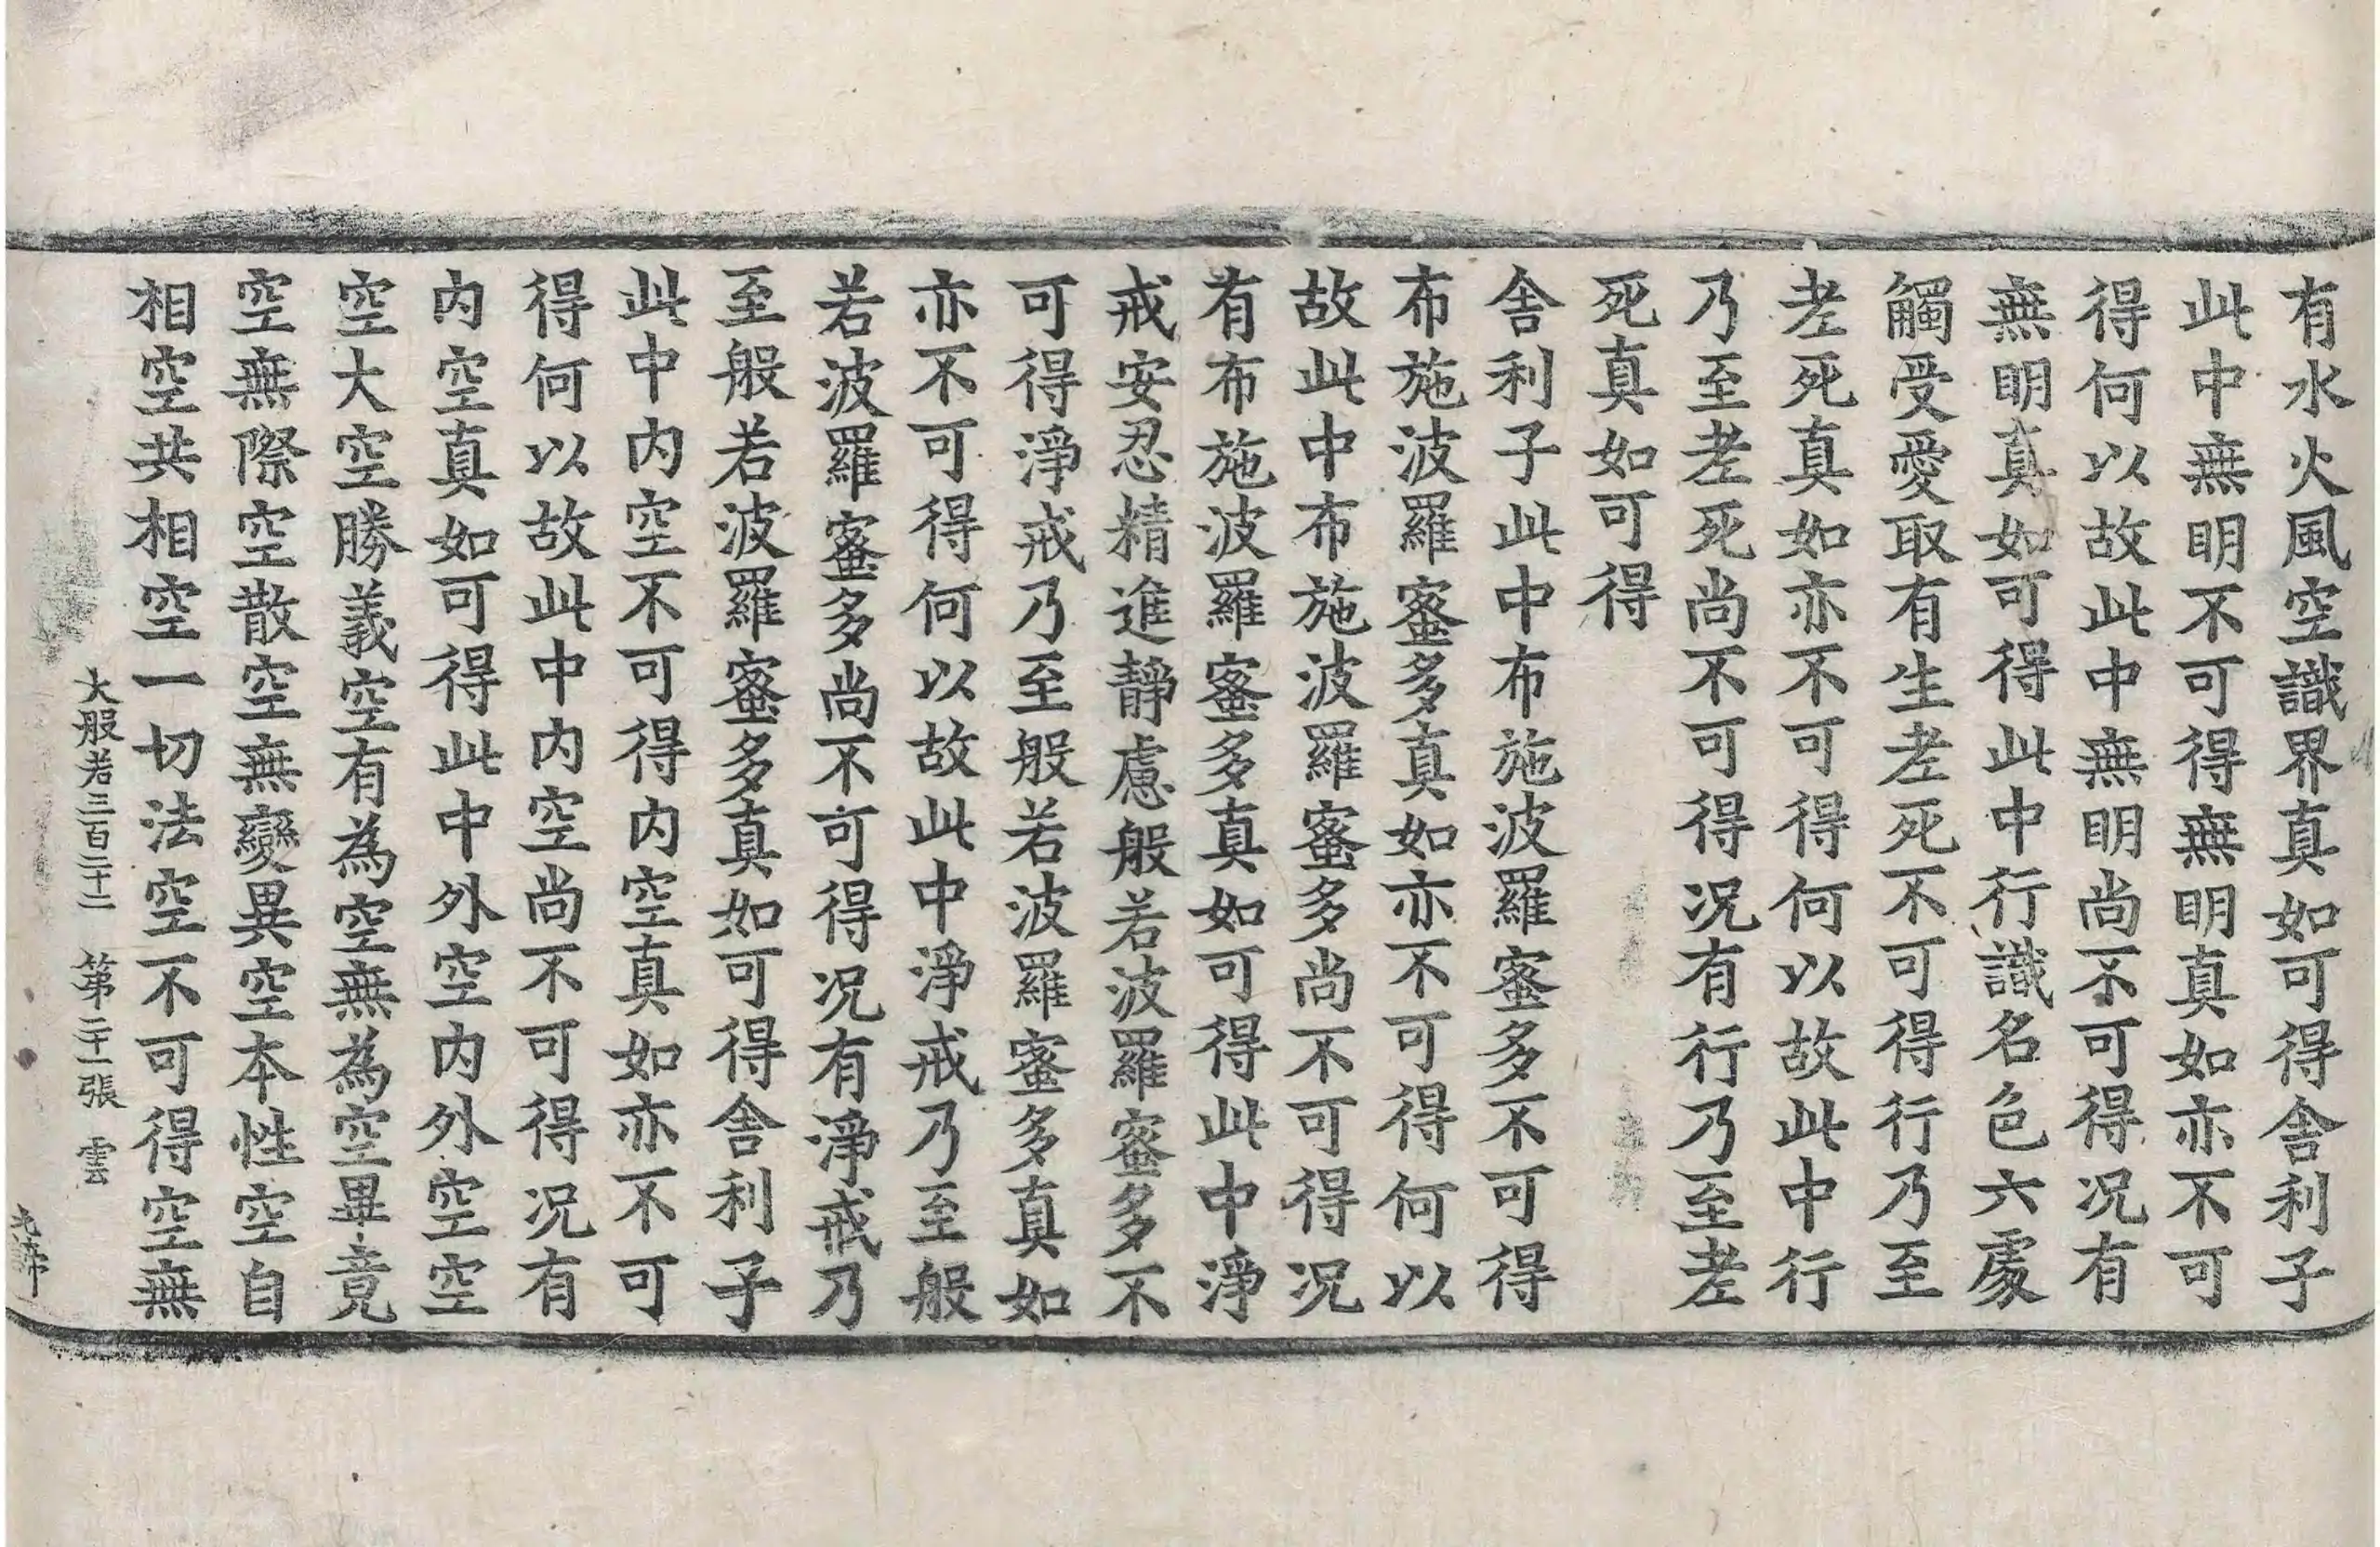 有水火風空識界真如可得舎利子
此中無明不可得無明真如亦不可
得何以故此中無明尚不可得况有
無明真如可得此中行識名色六處
觸受愛取有生老死不可得行乃至
老死真如亦不可得何以故此中行
乃至老死尚不可得况有行乃至老
死真如可得
舎利子此中布施波羅蜜多不可得
布施波羅蜜多真如亦不可得何以
故此中布施波羅蜜多尚不可得况
有布施波羅蜜多真如可得此中淨
戒安忍精進靜慮般若波羅蜜多不
可得淨戒乃至般若波羅蜜多真如
亦不可得何以故此中淨戒乃至般
若波羅蜜多尚不可得况有淨戒乃
至般若波羅蜜多真如可得舎利子
此中内空不可得内空真如亦不可
得何以故此中内空尚不可得况有
内空真如可得此中外空内外空空
空大空勝義空有為空無為空畢竟
空無際空散空無變異空本性空自
相空共相空一切法空不可得空無
大般若三百二十二 第二十一張 雲